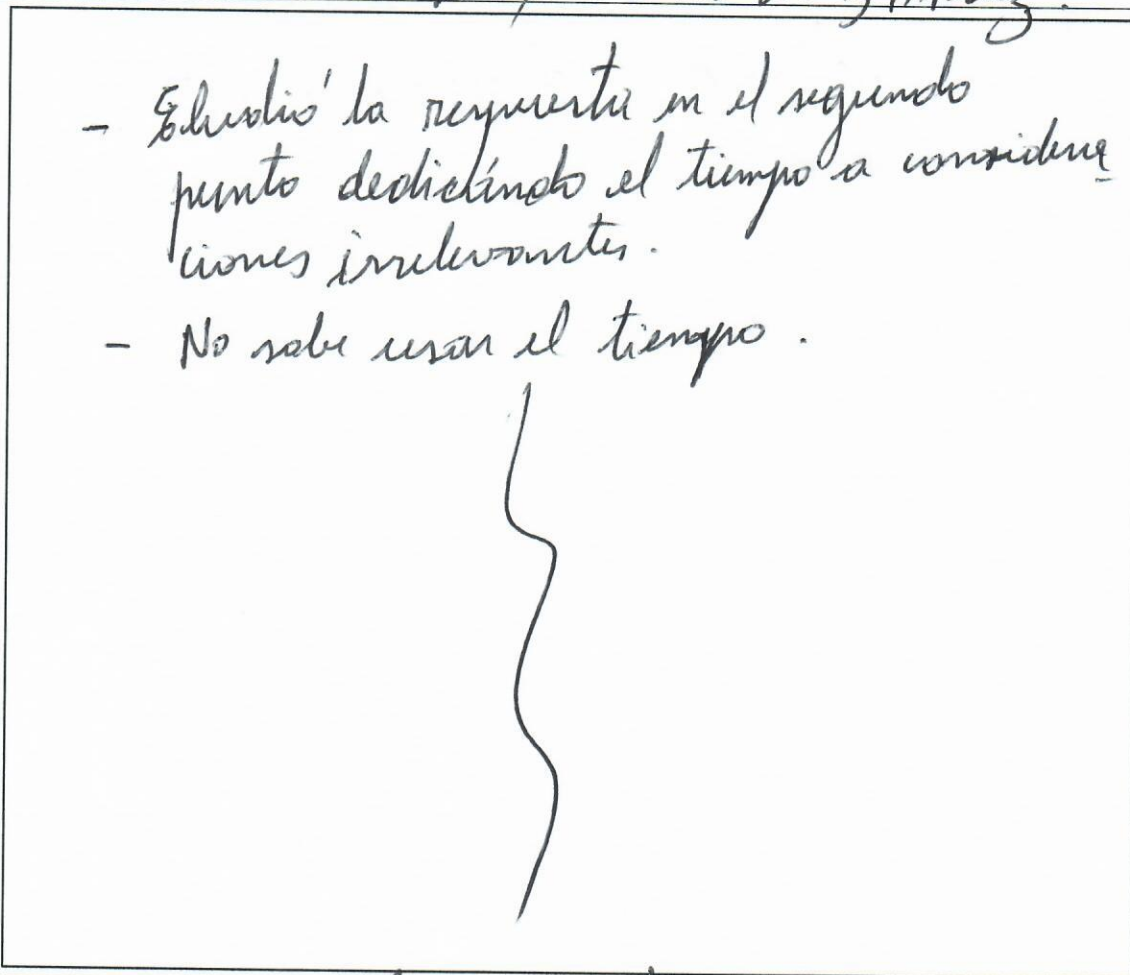 - Eludió la respuesta en el segundo
punto dedicándo el tiempo a considera
ciones irrelevantes.
- No sabe usar el tiempo.